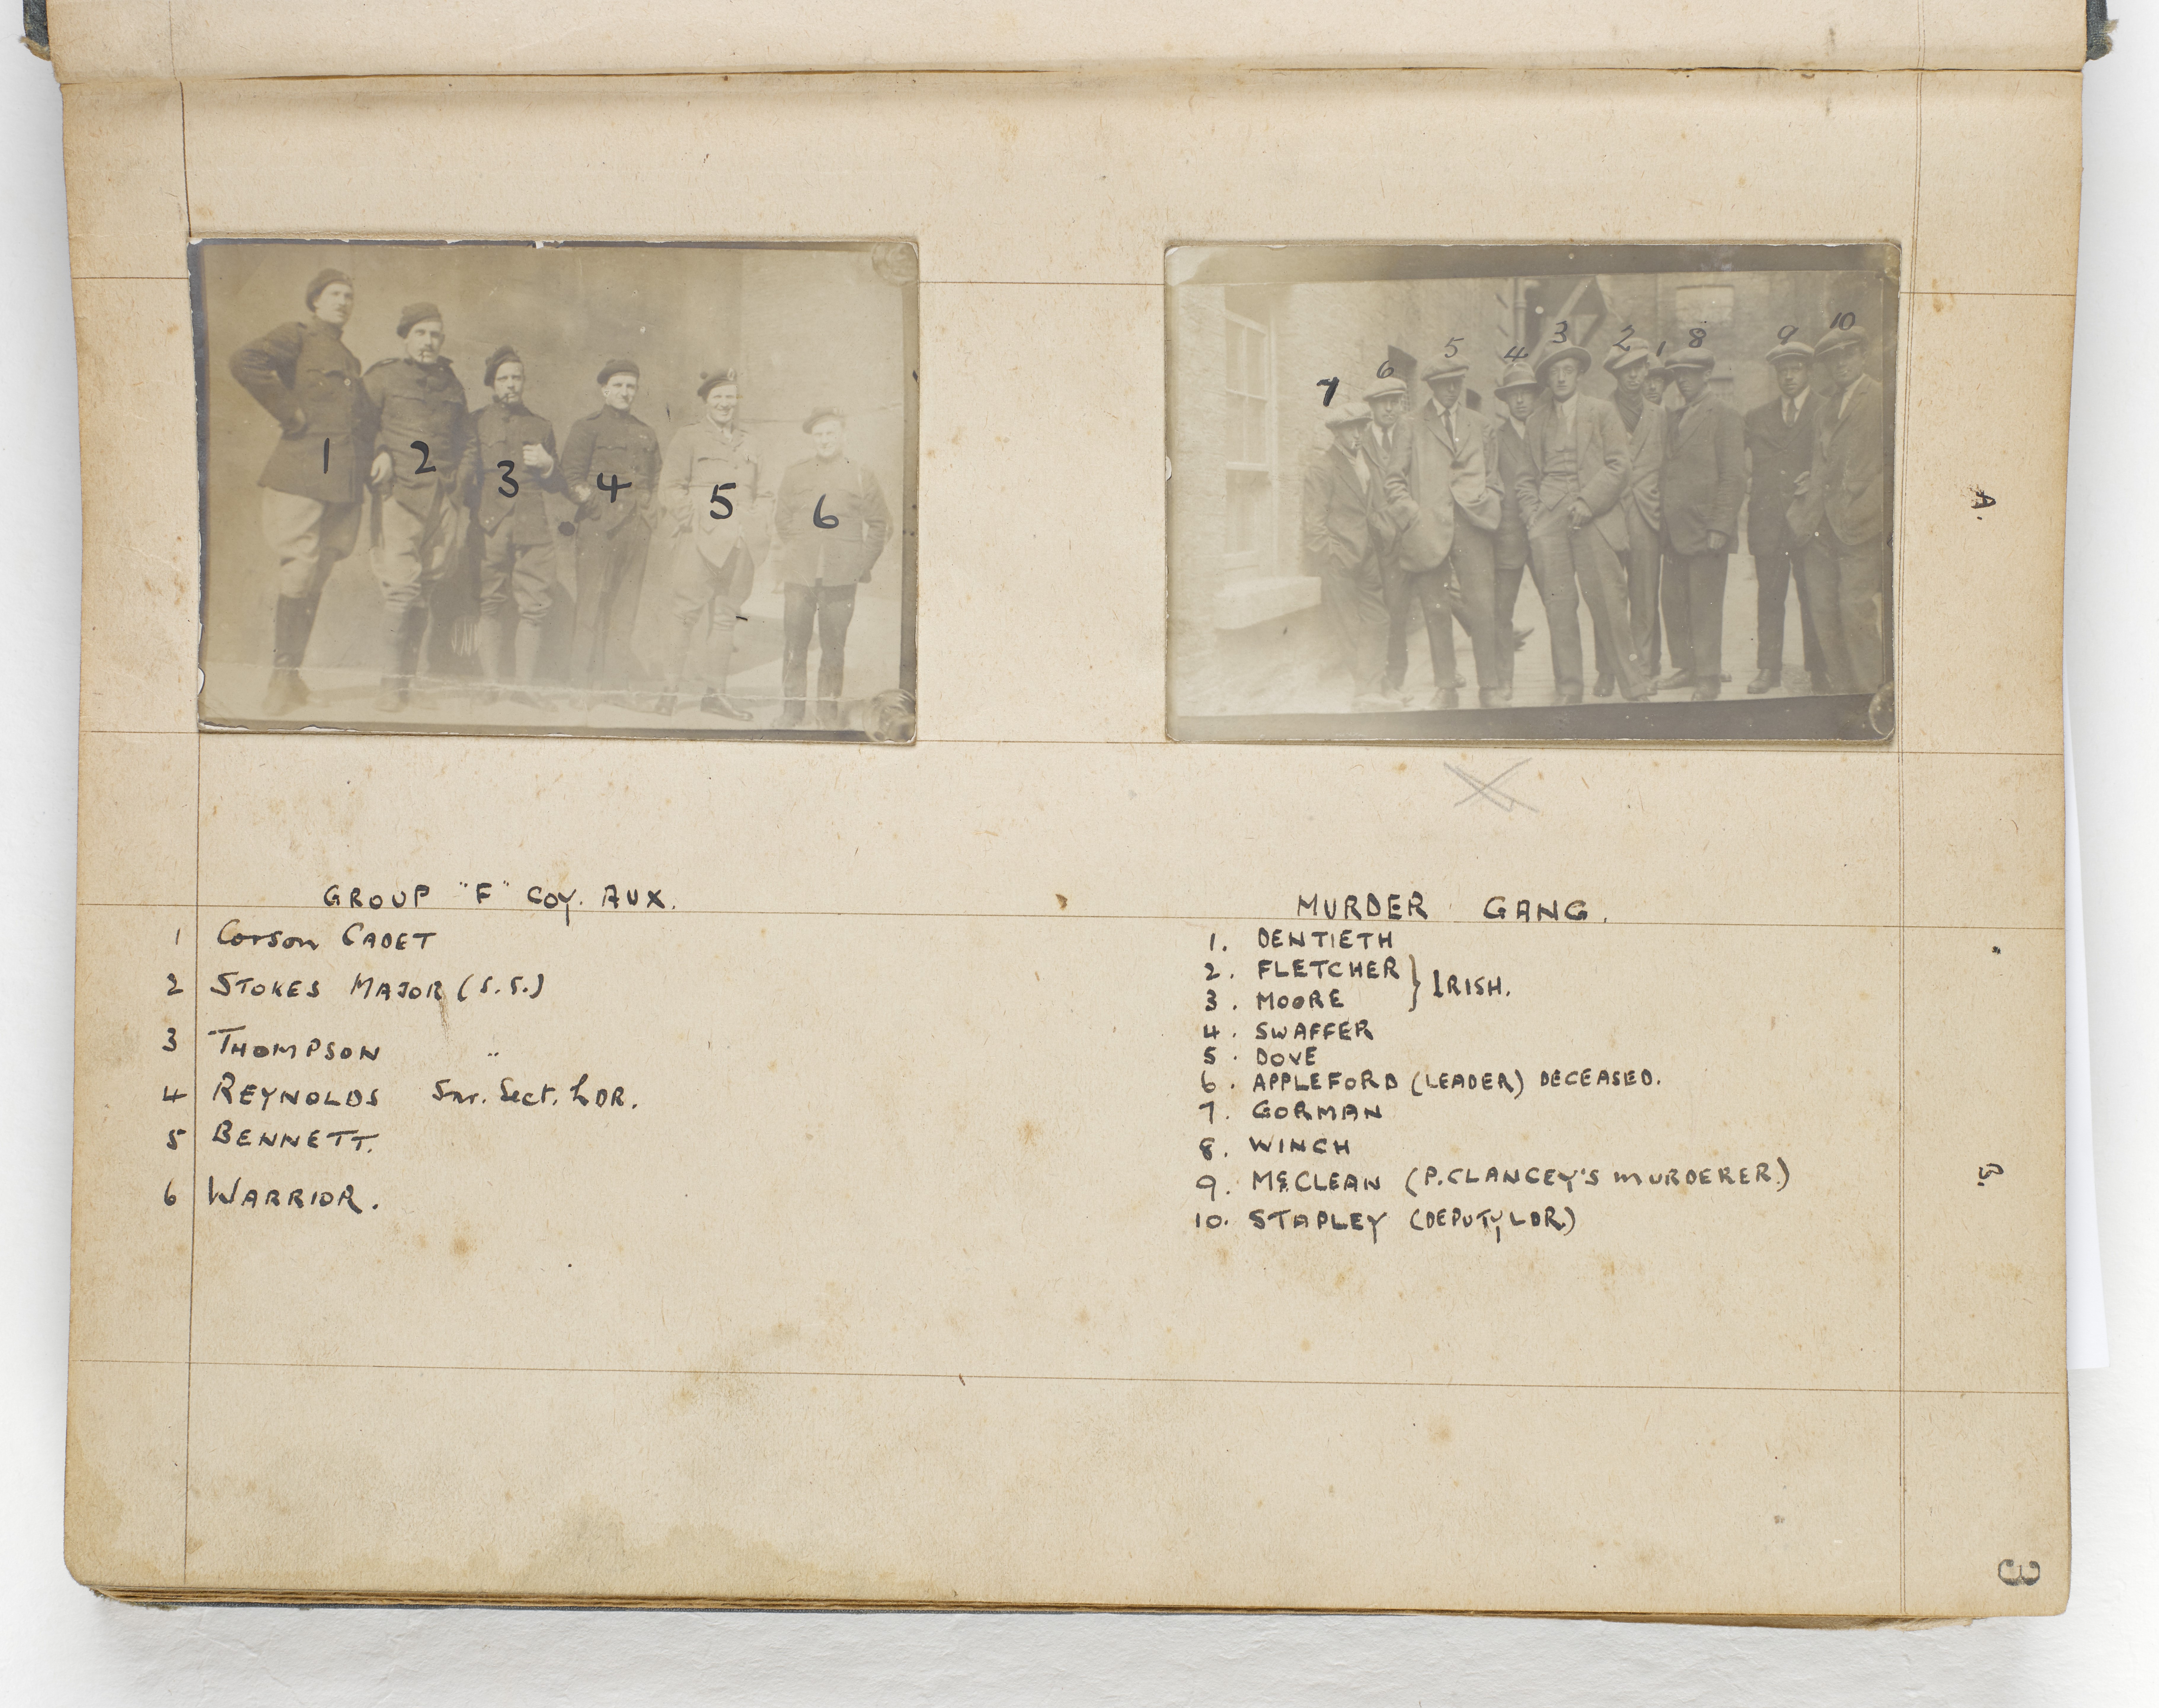 1
2
3
4
5
6
7
6
5
4
3
2
1
8
9
10
A.
GROUP "F" COY. AUX.
1 Corson CADET
2 STOKES MAJOR (S.S.)
3 THOMPSON "
4 REYNOLDS Snr. Sect. LDR.
5 BENNETT.
6 WARRIOR.
MURDER GANG.
1. DENTIETH
2. FLETCHER } IRISH.
3. MOORE
4. SWAFFER
5. DOVE
6. APPLEFORD (LEADER) DECEASED.
7. GORMAN
8. WINCH
9. McCLEAN (P. CLANCEY'S MURDERER.)
10. STAPLEY (DEPUTY LDR.)
3